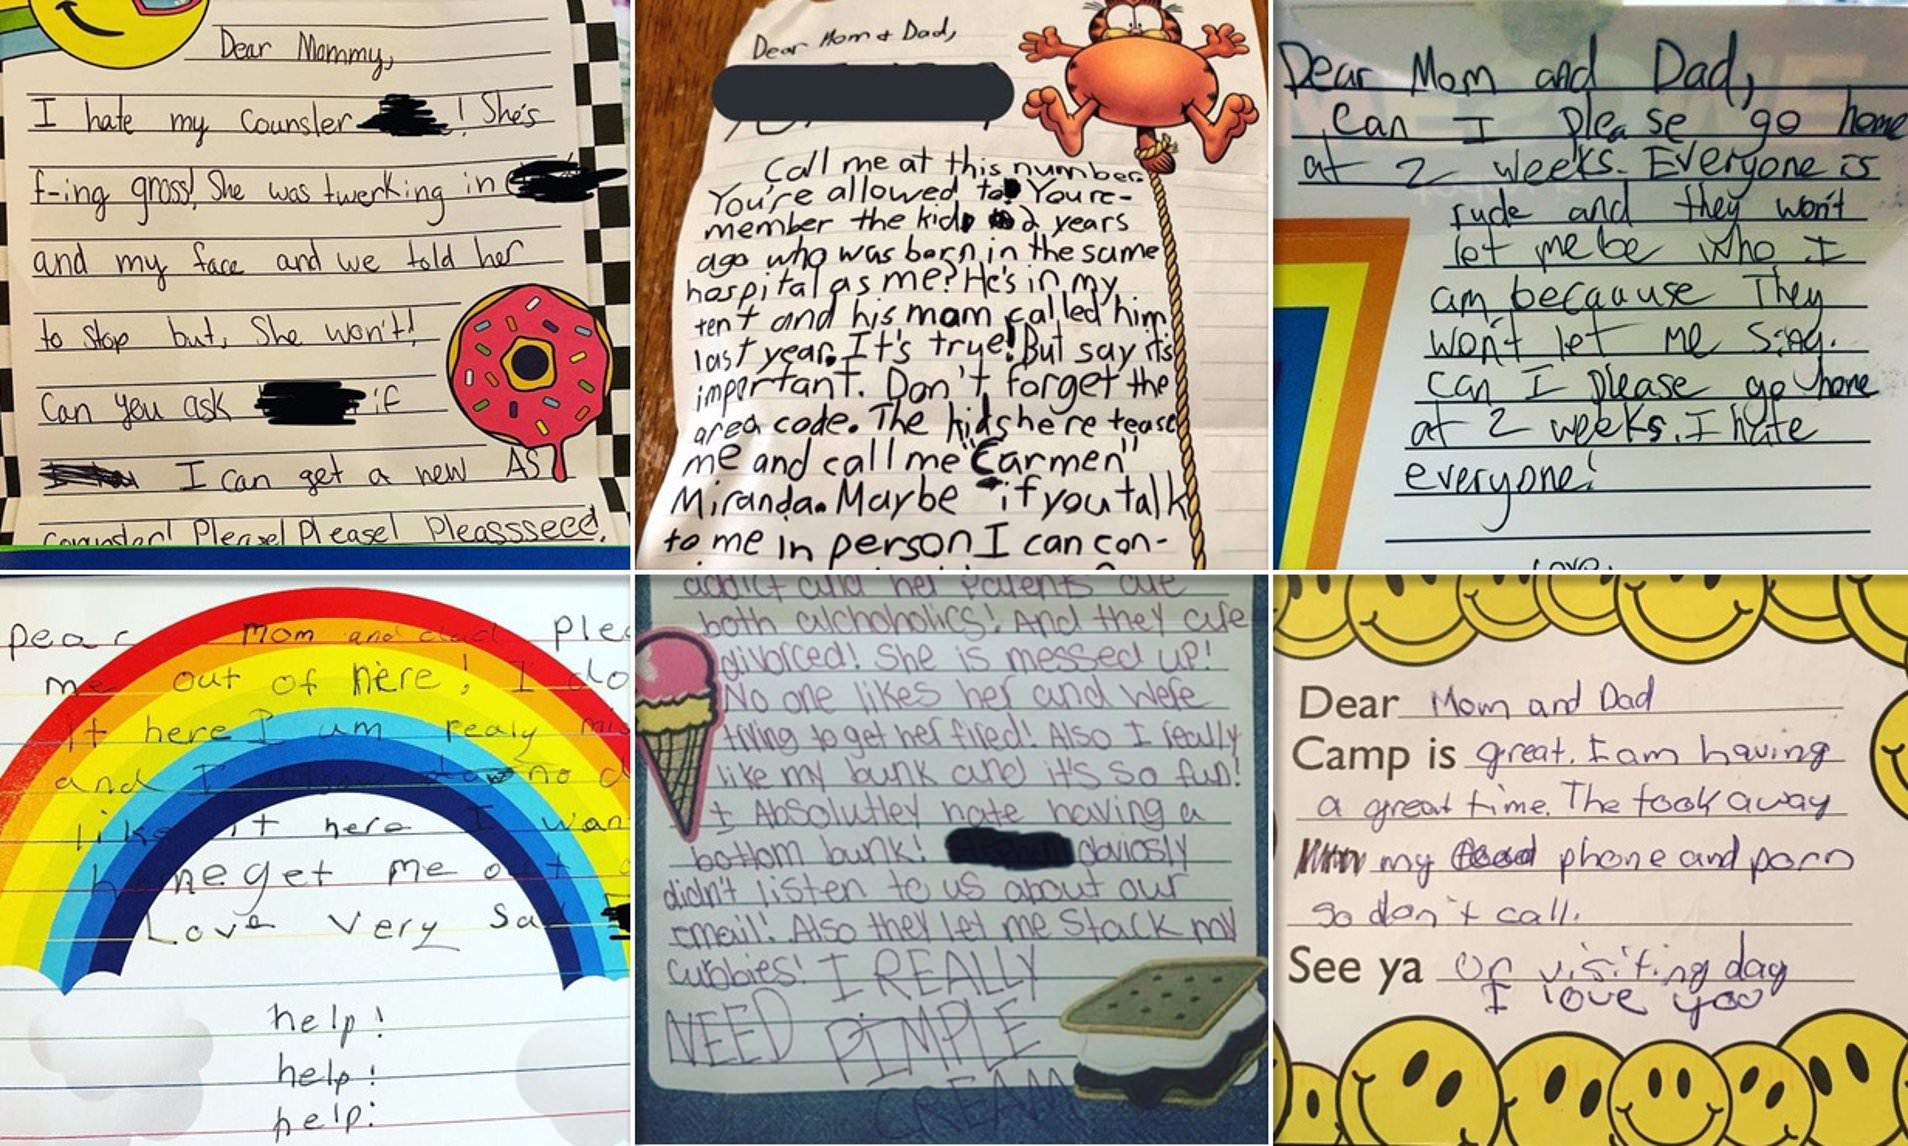 Dear Mommy,
I hate my Counsler ! She's
f-ing gross! She was twerking in
and my face and we told her
to stop but, She won't!
Can you ask if
I can get a new AS
Please! Please! Pleasssece,
Dear Mom & Dad,
Call me at this number.
You're allowed to! You re-
member the kid 2 years
ago who was born in the same
hospital as me? He's in my
tent and his mom called him
last year. It's true! But say it's
important. Don't forget the
area code. The kids here tease
me and call me "Carmen"
Miranda. Maybe if you talk
to me in person I can con-
Dear Mom and Dad,
Can I please go home
at 2 weeks. Everyone is
rude and they won't
let me be who I
am becauuse They
won't let me sing.
Can I please go home
at 2 weeks. I hate
everyone!
Love,
Dear Mom and dad
me out of here! I do
It here I um realy
and I no
like it here I
get me out
Love very Sad
help!
help!
help!
addict and her parents are
both alchoholics! And they are
divorced! She is messed up!
No one likes her and we're
trying to get her fired! Also I really
like my bunk and it's so fun!
I Absolutley hate having a
bottom bunk! obviosly
didn't listen to us about our
email! Also they let me Stack my
cubbies! I REALLY
NEED PIMPLE
CREAM
Dear Mom and Dad
Camp is great. I am having
a great time. The took away
my phone and porn
so don't call.
See ya on visiting day
I love you